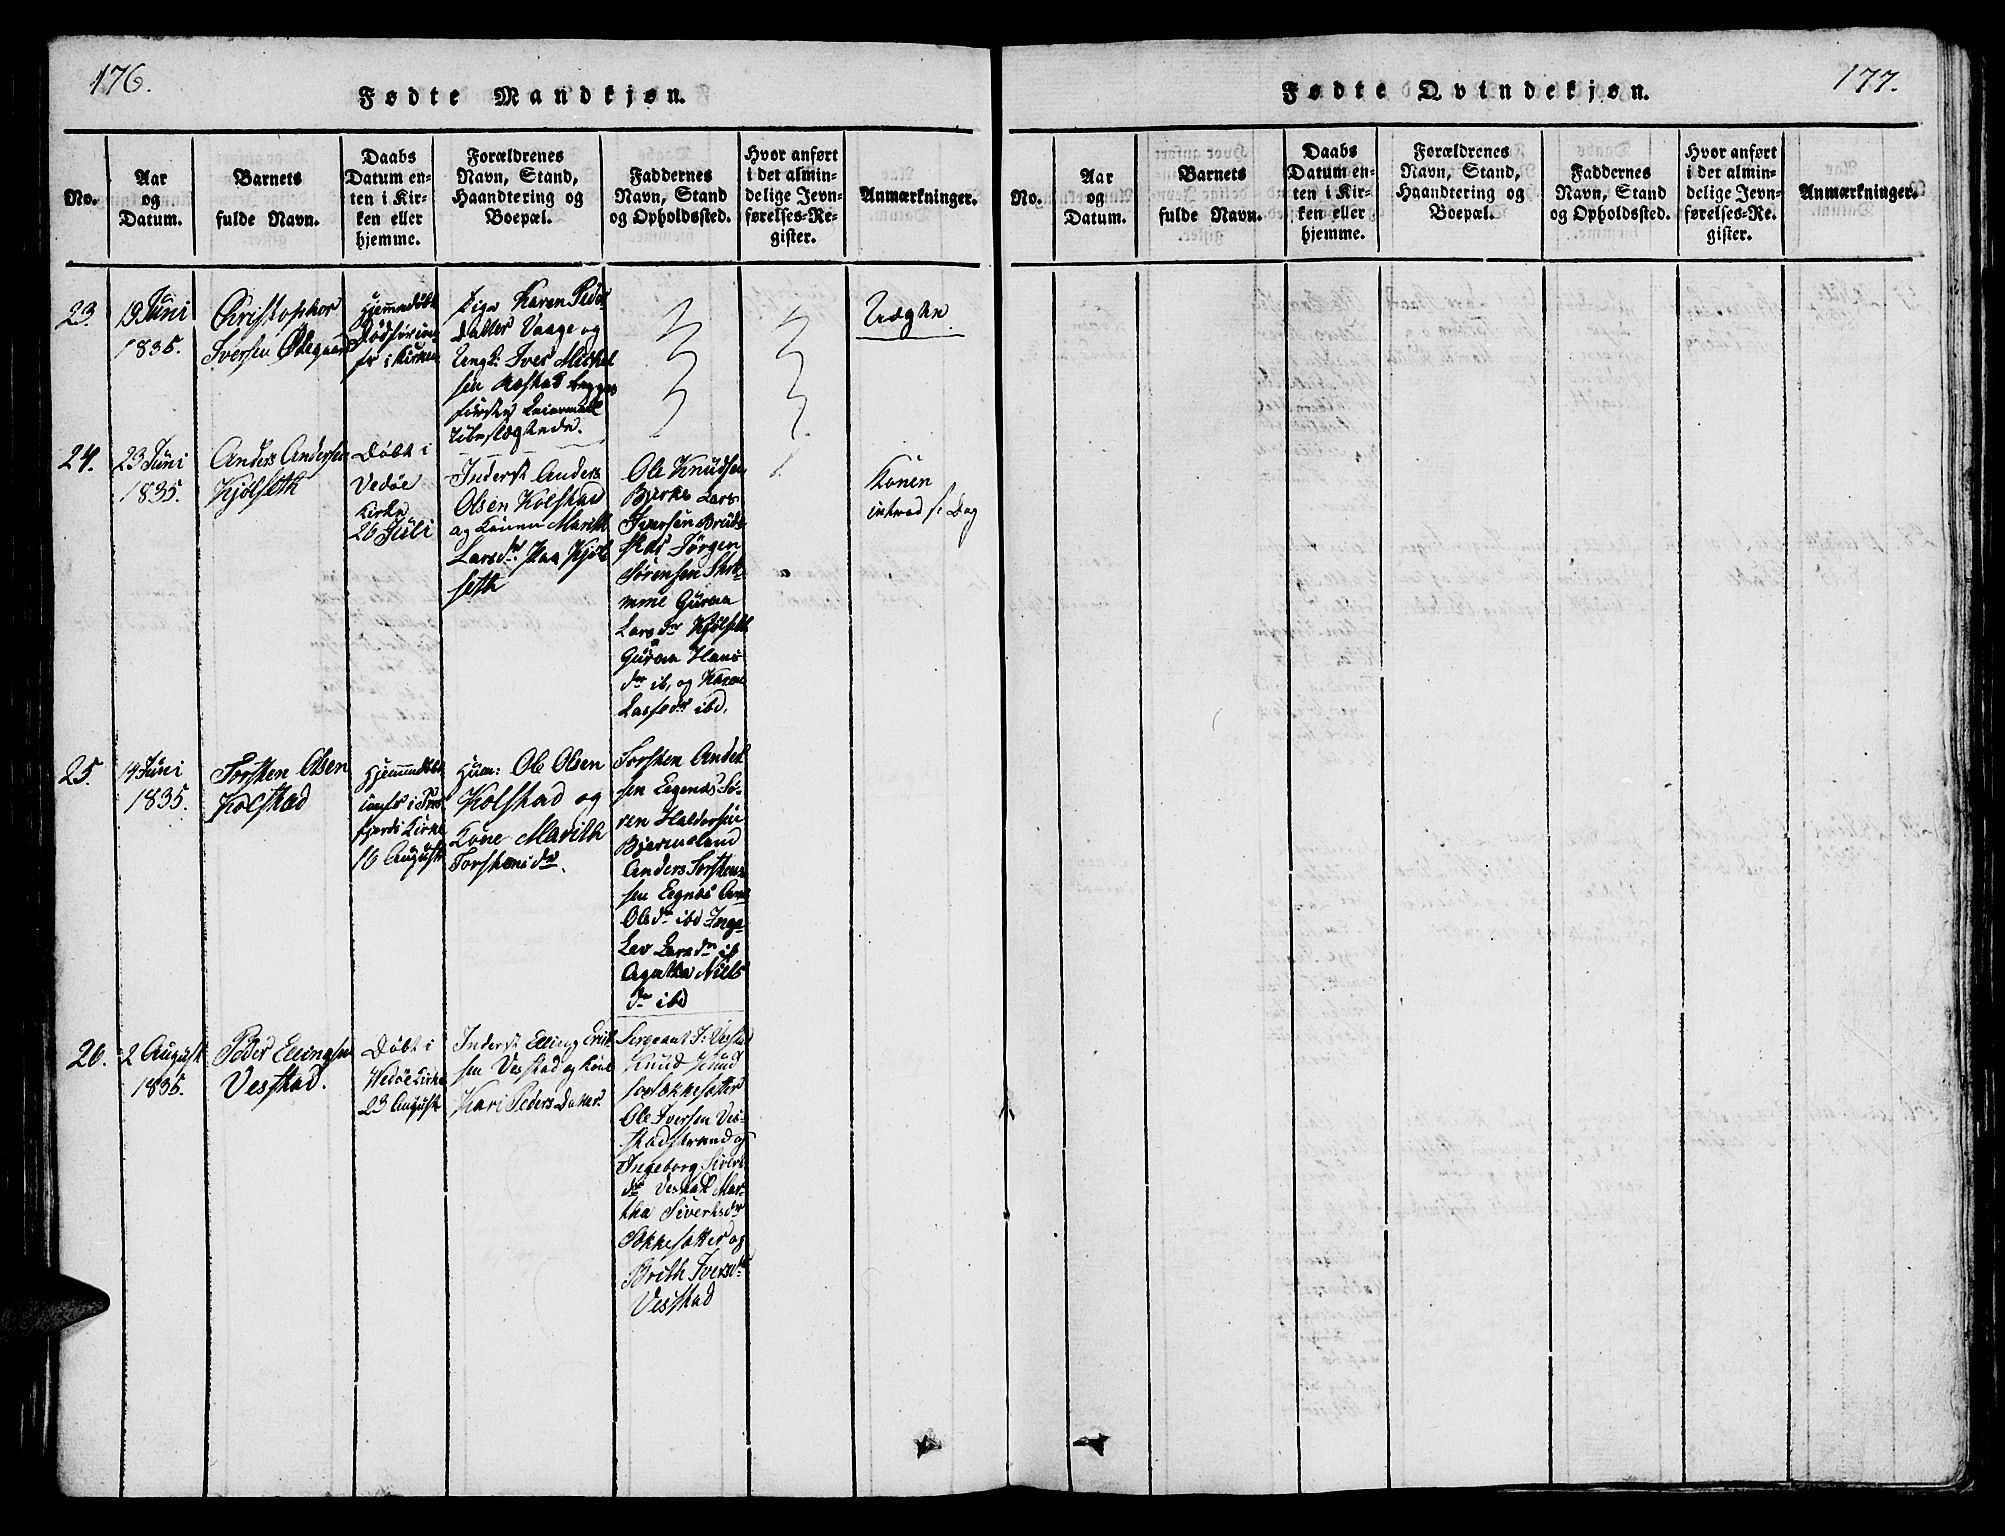 176.
Fødte Mandkjøn.
No.
Aar
og
Datum.
Barnets
fulde Navn.
Daabs
Datum en-
ten i Kir-
ken eller
hjemme.
Forældrenes
Navn, Stand,
Haandtering og
Boepæl.
Faddernes
Navn, Stand
og Opholdssted.
Hvor anført
i det almin-
delige Jevn-
førelses-Re-
gister.
Anmærkninger.
23.
19 Juni
1835.
Christopher
Iversen Ødegaard
Hjemmedøbt
i Kirken
Pige Karen Peders
Datter Vaage og
Ungk: Iver Mickel
sen
Leiermaal
Uægte
24.
23 Juni
1835.
Anders Andersen
Kjölseth
Døbt i
Vedöe
Kirke
26 Juli
Inderst Anders
Olsen Kolstad
og Konen Marith
Larsdr: Kjöl
seth
Ole Knudsen
Bjerke Lars
Iversen
Jörgen
Sörensen
Guroe
Larsdr Kjölseth
Guroe Hans
dr ib, og Karen
Lassedr ibd.
Konen
introd: s: Dag
25.
4 Juni
1835.
Torsten Olsen
Kolstad
Hjemmedøbt
i
fjords Kirke
16 August
Huusm: Ole Olsen
Kolstad og
Kone Marith
Torstensdr.
TorstenAnder
sen Eegenæs Sö-
ren Haldorsen
Bjermeland
Anders Torsten
sen Eegnæs
Olsdr ibd Inge-
Larsdr ib
Agatha Niels
dr ibd
26.
2 August
1835.
Peder Ellingsen
Vesstad.
Døbt i
Wedöe Kirke
23 August
Inderst Elling Erik
sen Vesstad og Kone
Kari Peders Datter
Sergeant Vestad
Knud Knud
sen Sökkesætter
Ole Iversen Ves-
stadstrand og
Ingeborg Sivert
dr Vestad Mar-
tha Sivertsdr
Sökkesætter og
Brith Iversdr
Vesstad
177.
Fødte Qvindekjøn.
No.
Aar
og
Datum.
Barnets
fulde Navn.
Daabs
Datum en-
ten i Kir-
ken eller
hjemme.
Forældrenes
Navn, Stand,
Haandtering og
Boepæl.
Faddernes
Navn, Stand
og Opholdssted.
Hvor anført
i det almin-
delige Jevn-
førelses-Re-
gister.
Anmærkninger.